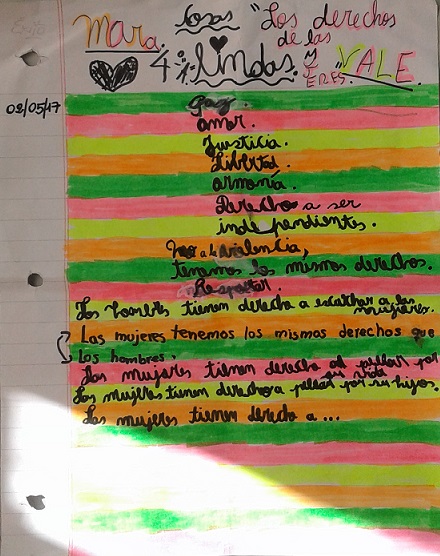 Mara. Cosas "Los derechos
de las
4ºi Lindas. y
ERES" VALE.
02/05/17
Paz.
amor.
Justicia.
Libertad.
armonía.
Derecho a ser
independientes.
No a la violencia,
tenemos los mismos derechos.
Respetar.
Los hombres tienen derecho a escuchar a las
mujeres.
Las mujeres tenemos los mismos derechos que
los hombres.
Las mujeres tienen derecho al pelear por
su vida
Las mujeres tienen derecho a pelear por su hijos.
Las mujeres tienen derecho a ...